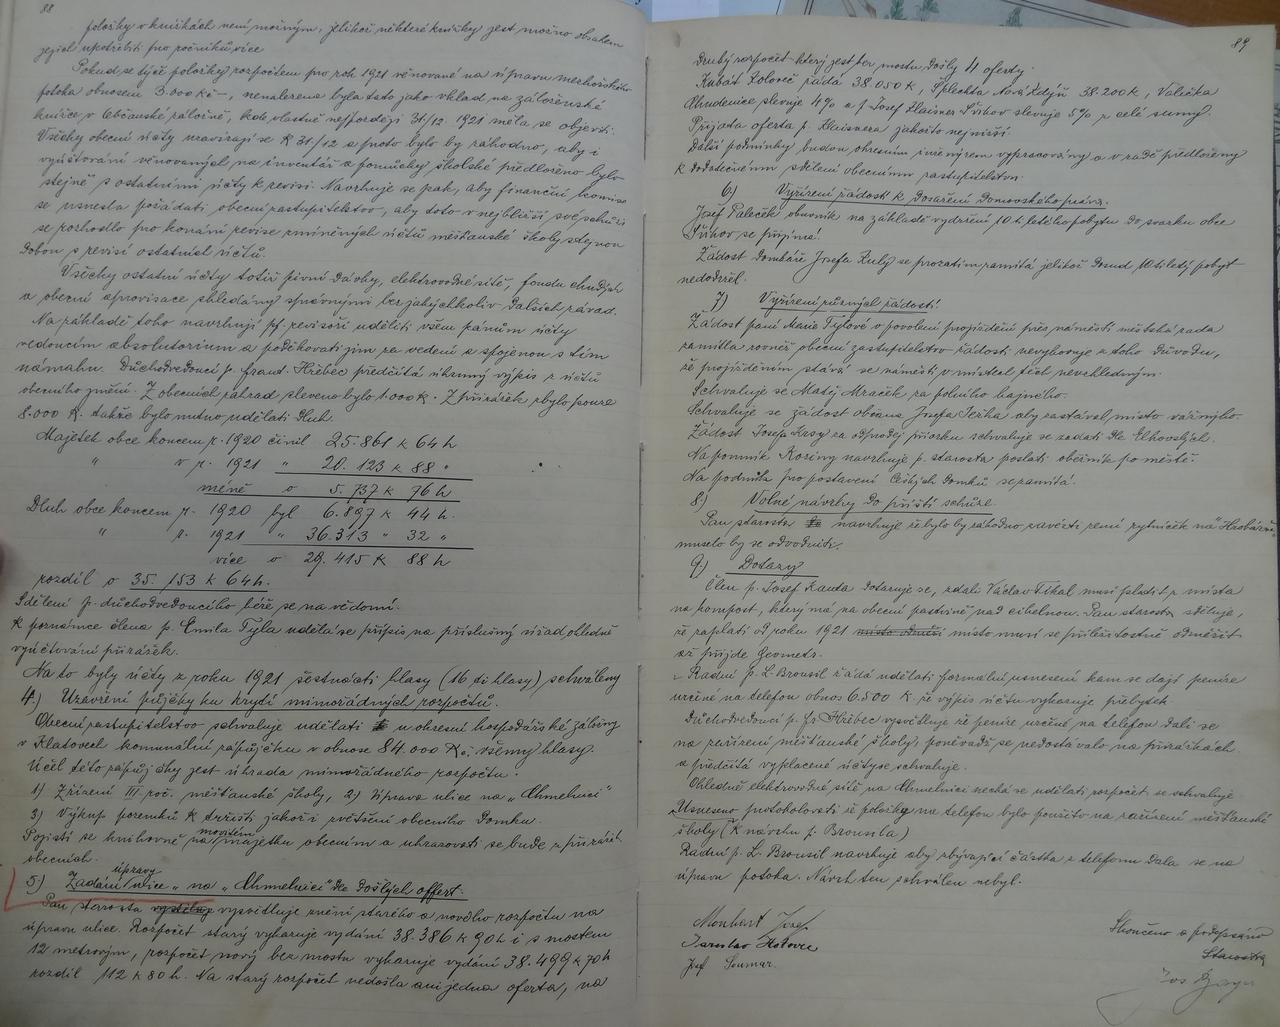 88
položky v knížkách není možným, jelikož některé knížky jest možno obsahem
jejich upotřebiti pro ročníků více
Pokud se týče položky rozpočtem pro rok 1921 věnované na úpravu
potoka obnosem 3.000 Kč –, nenalezena byla tato jako vklad na záloženské
knížce v občanské záložně, kde vlastně nejpozději 31/12 1921 měla se objeviti.
Všechny obecní účty uzavírají se k 31/12 a proto bylo by záhodno, aby i
vyúčtování věnovaných na inventář a pomůcky školské předloženo bylo
stejně s ostatními účty k revisi. Navrhuje se pak, aby finanční komise
se usnesla požádati obecní zastupitelstvo, aby toto v nejbližší své schůzi
se rozhodlo pro konání revise zmíněných účtů měšťanské školy stejnou
dobou s revisí ostatních účtů.
Všechny ostatní účty totiž pivní dávky, elektrovodné sítě, fondu chudých
a obecní aprovisace shledány správnými bez jakýchkoliv dalších závad.
Na základě toho navrhují pp. revisoři uděliti všem pánům účty
vedoucím absolutorium a poděkovati jim za vedení a spojenou s tím
námahu. Důchodvedoucí p. Frant. Hřebec předčítá úhrnný výpis z účtů
obecního jmění. Z obecních zahrad sleveno bylo 1.000 K. Z přirážek zbylo pouze
8.000 K. takže bylo nutno udělati dluh.
Majetek obce koncem r. 1920 činil 25.861 K 64 h
" v r. 1921 " 20.123 K 88 "
méně o 5.737 K 76 h
Dluh obce koncem r. 1920 byl 6.897 K 44 h.
" r. 1921 " 36.313 " 32 "
více o 29.415 K 88 h
rozdíl o 35.153 K 64 h.
Sdělení p. důchodvedoucího béře se na vědomí.
K poznámce člena p. Emila Tyla udělá se přípis na příslušný úřad ohledně
vyúčtování přirážek.
Na to byly účty z roku 1921 šestnácti hlasy (16 ti hlasy) schváleny
4.) Uzavření půjčky ku krytí mimořádných rozpočtů.
Obecní zastupitelstvo schvaluje udělati u okresní hospodářské záložny
v Klatovech komunální zápůjčku v obnose 84.000 Kč všemi hlasy.
Účel této zápůjčky jest úhrada mimořádného rozpočtu.
1) Zřízení III. roč. měšťanské školy, 2) Úprava ulice na „Chmelnici"
3) Výkup pozemků k dražišti jakož i zvětšení obecního domku.
Pojistí se knihovně na movitém majetku obecním a uhrazovati se bude z přirážek
obecních.
5) Zadání úpravy ulice „na „Chmelnici" dle došlých offert.
Pan starosta vysvětluje znění starého a nového rozpočtu na
úpravu ulice. Rozpočet starý vykazuje vydání 38.386 K 90 h i s mostem
12 metrovým, rozpočet nový bez mostu vykazuje vydání 38.499 K 70 h
rozdíl 112 K 80 h. Na starý rozpočet nedošla ani jedna oferta, na
89
druhý rozpočet který jest bez mostu došly 4 oferty.
Kubát Koloveč žádá 38.050 K, Šplechta Nová Kdyň 38.200 K, Valečka
Chudenice slevuje 4% a p. Josef Klaisner Švihov slevuje 5% z celé sumy.
Přijata oferta p. Klaisnera jakožto nejnižší.
Další podmínky budou okresním inženýrem vypracovány a v radě předloženy
k dodatečnému sdělení obecnímu zastupitelstvu.
6.) Vyřízení žádostí k dosažení domovského práva.
Josef Paleček obuvník na základě vydržení 10 t. letého pobytu do svazku obce
Švihov se přijímá.
Žádost domkáře Josefa Kulý se prozatím zamítá jelikož dosud 10 tiletý pobyt
nedodržel.
7.) Vyřízení různých žádostí.
Žádost paní Marie Tylové o povolení projíždění přes náměstí městská rada
zamítla rovněž obecní zastupitelstvo žádosti nevyhovuje z toho důvodu,
že projížděním stává se náměstí v místech těch nevzhledným.
Schvaluje se Matěj Mraček za polního hajného.
Schvaluje se žádost občana Josefa Ježka aby zastával místo vážného.
Žádost Josefa Krsy za odprodej písoku schvaluje se zadati dle
Na pomník Kosiny navrhuje p. starosta poslati oběžník po městě.
Na podnik pro postavení Českých domků se zamítá.
8.) Volné návrhy do příští schůze
Pan starosta navrhuje že bylo by záhodno zavézti zemí rybníček na
muselo by se odvodniti.
9.) Dotazy
Člen p. Josef Kanta dotazuje se, zdali Václav Tikal musí platit z místa
na kompost, který má na obecní pastvině nad cihelnou. Pan starosta sděluje,
že zaplatí od roku 1921 místo musí se příležitostně odměřit
až přijde geometr.
Radní p. L. Brousil žádá udělati formální usnesení kam se dají peníze
určené na telefon obnos 6.500 K že výpis účtu vykazuje přebytek
Důchodvedoucí p. Fr. Hřebec vysvětluje že peníze určené na telefon dali se
na zařízení měšťanské školy, poněvadž se nedostávalo na přirážkách
a předčítá vyplacené účty se schvaluje.
Ohledně elektrovodné sítě na Chmelnici nechá se udělati rozpočet se schvaluje
Usneseno protokolovati že položky na telefon bylo použito na zařízení měšťanské
školy (K návrhu p. Brousila)
Radní p. L. Brousil navrhuje aby zbývající částka z telefonu dala se na
úpravu potoka. Návrh ten schválen nebyl.
Josef
Jaroslav
Josef Soumar.
Skončeno a podepsáno
Starosta
Jos